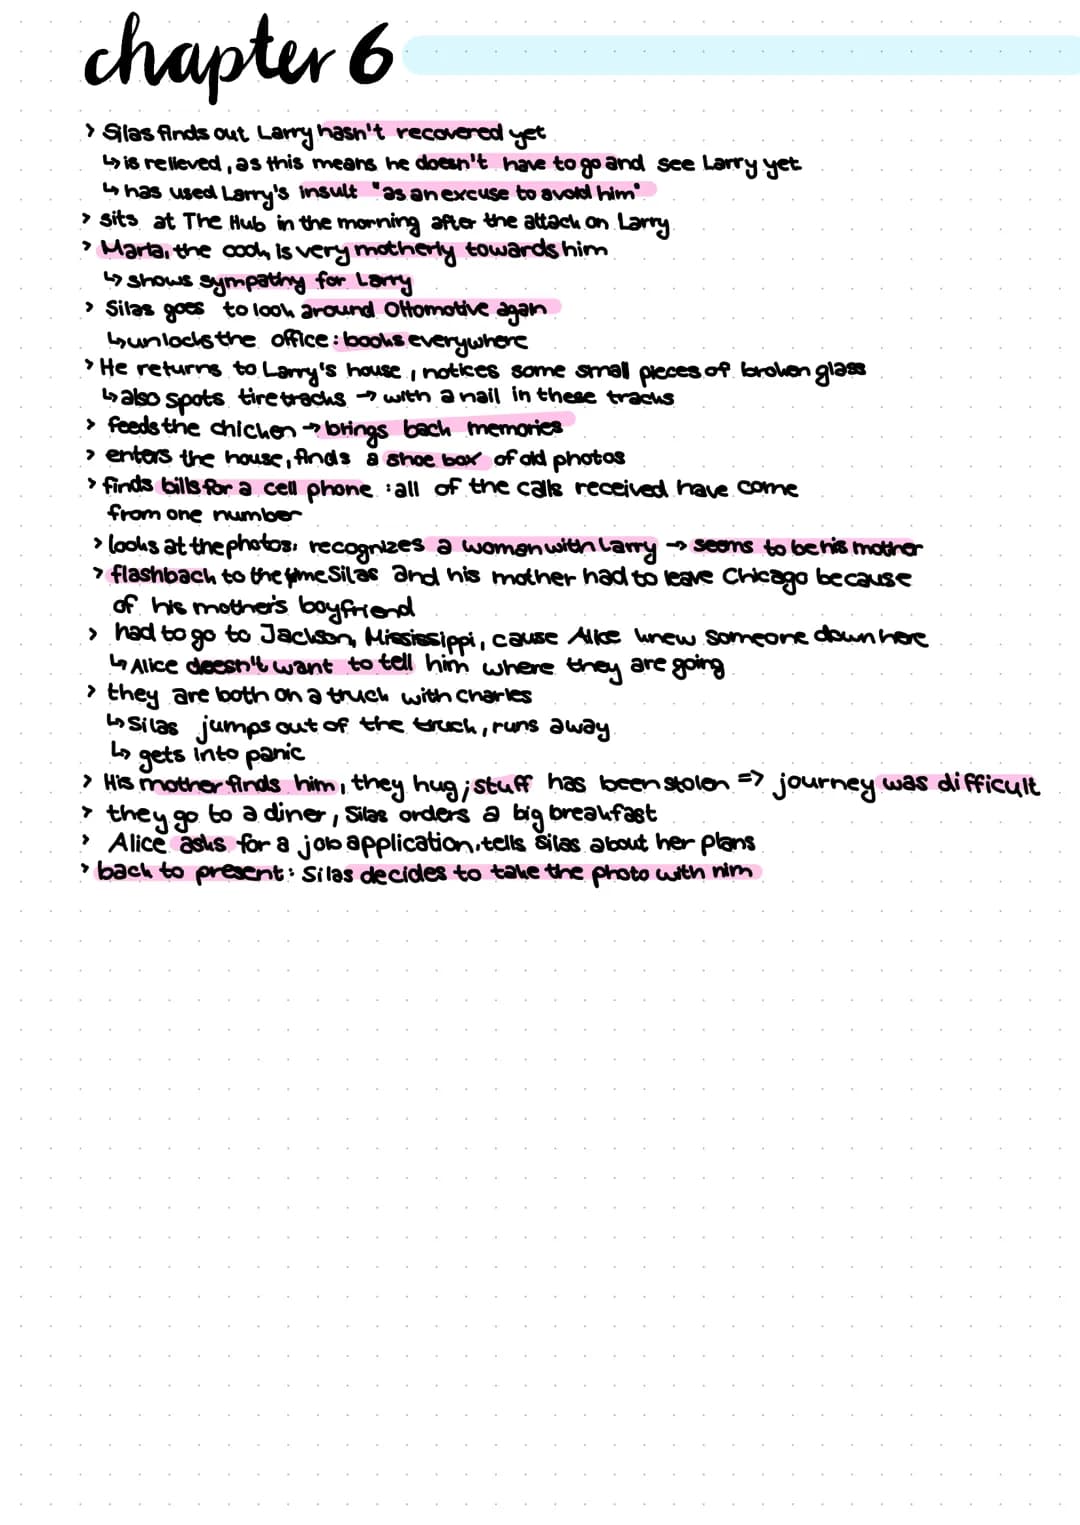 chapter 6
> Silas finds out Larry hasn't recovered yet
↳ is relieved, as this means he doesn't have to go and see Larry yet
↳ has used Larry's insult "as an excuse to avoid him"
> sits at The Hub in the morning after the attack on Larry
> Marla, the cook, is very motherly towards him
↳ shows sympathy for Larry
> Silas goes to look around Ottomotive again
↳ unlocks the office : books everywhere
> He returns to Larry's house, notices some small pieces of broken glass
↳ also spots tire tracks → with a nail in these tracks
> feeds the chicken → brings back memories
> enters the house, finds a shoe box of old photos
> finds bills for a cell phone : all of the calls received have come
from one number
> looks at the photos, recognizes a woman with Larry → seems to be his mother
> flashback to the time Silas and his mother had to leave Chicago because
of his mother's boyfriend
> had to go to Jackson, Mississippi, cause Alice knew someone down here
↳ Alice deesn't want to tell him where they are going
> they are both on a truck with Charles
↳ Silas jumps out of the truck, runs away
↳ gets into panic
> His mother finds him, they hug ; stuff has been stolen => journey was difficult
> they go to a diner, Silas orders a big breakfast
> Alice asks for a job application, tells Silas about her plans
> back to present : Silas decides to take the photo with him